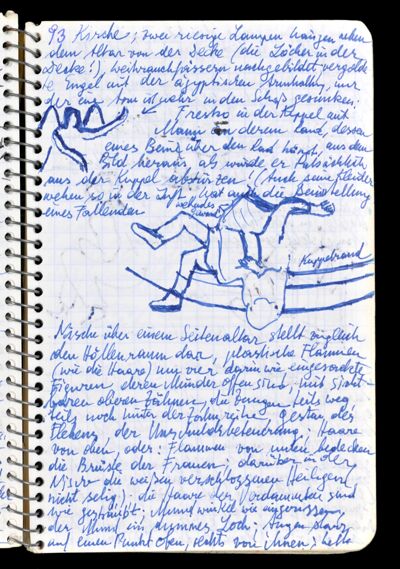 93 Kirche; zwei riesige Lampen hängen neben
dem Altar von der Decke (die Löcher in der
Decke!), Weihrauchfässern nachgebildet, vergolde
te Engel mit der ägyptischen Armhaltung, nur
der eine Arm ist mehr in den Schoß gesunken;
Fresko in der Kuppel mit
Mann an deren Rand, dessen
eines Bein über den Rand hängt, aus dem
Bild heraus, als würde er tatsächlich
aus der Kuppel abstürzen! (Auch seine Kleider
wehen so in der Luft. Hat auch die Beinstellung
eines Fallenden
wehendes
Gewand
Kuppelrand
Nische über einem Seitenaltar stellt zugleich
den Höllenraum dar, plastische Flammen
(wie die Haare) um vier darin wie eingesargte
Figuren, deren Münder offen sind, mit sicht-
baren oberen Zähnen, die Zungen teils weg
teils noch hinter der Zahnreihe, Gestus des
Flehens, der Unschuldsbeteuerung; Haare
von oben, oder: Flammen von unten bedecken
die Brüste der Frauen, darüber in der
Nische die weißen verschlossenen Heiligen
(nicht selig); die Haare der Verdammten sind
wie gesträubt; Mundwinkel wie eingerissen,
der Mund ein dummes Loch; Augen starr
auf einen Punkt oben, rechts von ihnen;